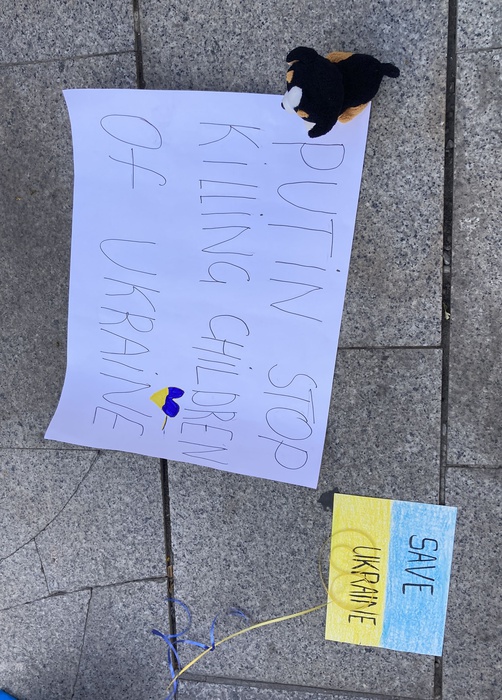 PUTiN STOP
KiLLiNG CHiLDREN
Of UKRAiNE
SAVE
UKRAINE